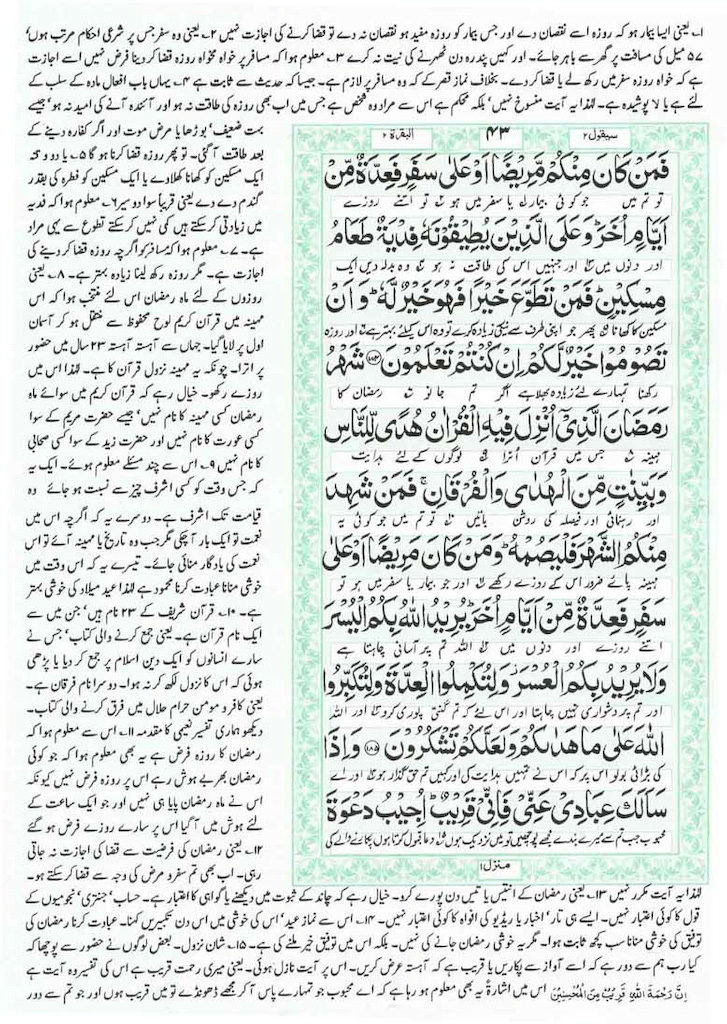 ۱۔ یعنی ایسا بیمار ہو کہ روزہ اسے نقصان دے اور جس بیمار کو روزہ مفید ہو نقصان نہ دے تو قضا کرنے کی اجازت نہیں ۲۔ یعنی وہ سفر جس پر شرعی احکام مرتب ہوں'
۵۷ میل کی مسافت پر گھر سے باہر جائے۔ اور کہیں پندرہ دن ٹھہرنے کی نیت نہ کرے ۳۔ معلوم ہوا کہ مسافر پر خواہ مخواہ روزہ قضا کر دینا فرض نہیں اسے اجازت
ہے کہ خواہ روزہ سفر میں رکھ لے یا قضا کر دے۔ بخلاف نماز قصر کے کہ وہ مسافر پر لازم ہے۔ جیسا کہ حدیث سے ثابت ہے ۴۔ یہاں باب افعال مادہ کے سلب کے
لئے ہے یا لا پوشیدہ ہے۔ لہٰذا یہ آیت منسوخ نہیں' بلکہ محکم ہے اس سے مراد وہ شخص ہے جس میں اب بھی روزہ کی طاقت نہ ہو اور آئندہ آنے کی امید نہ ہو' جیسے
سیقول ۲
۴۳
البقرة ۲
فَمَنْ كَانَ مِنْكُمْ مَّرِيْضًا اَوْ عَلٰى سَفَرٍ فَعِدَّةٌ مِّنْ
تو تم میں جو کوئی بیمار یا سفر میں ہو تو اتنے روزے
اَيَّامٍ اُخَرَ وَعَلَى الَّذِيْنَ يُطِيْقُوْنَهٗ فِدْيَةٌ طَعَامُ
اور دنوں میں اور جنہیں اس کی طاقت نہ ہو وہ بدلہ دیں ایک
مِسْكِيْنٍ فَمَنْ تَطَوَّعَ خَيْرًا فَهُوَ خَيْرٌ لَّهٗ وَاَنْ
مسکین کا کھانا پھر جو اپنی طرف سے نیکی زیادہ کرے تو وہ اس کیلئے بہتر ہے اور روزہ
تَصُوْمُوْا خَيْرٌ لَّكُمْ اِنْ كُنْتُمْ تَعْلَمُوْنَ ﴿۱۸۴﴾ شَهْرُ
رکھنا تمہارے لئے زیادہ بھلا ہے اگر تم جانو رمضان کا
رَمَضَانَ الَّذِيْۤ اُنْزِلَ فِيْهِ الْقُرْاٰنُ هُدًى لِّلنَّاسِ
مہینہ جس میں قرآن اترا لوگوں کے لئے ہدایت
وَبَيِّنٰتٍ مِّنَ الْهُدٰى وَالْفُرْقَانِ فَمَنْ شَهِدَ
اور رہنمائی اور فیصلہ کی روشن باتیں تو تم میں جو کوئی یہ
مِنْكُمُ الشَّهْرَ فَلْيَصُمْهُ وَمَنْ كَانَ مَرِيْضًا اَوْ عَلٰى
مہینہ پائے ضرور اس کے روزے رکھے اور جو بیمار یا سفر میں ہو تو
سَفَرٍ فَعِدَّةٌ مِّنْ اَيَّامٍ اُخَرَ يُرِيْدُ اللّٰهُ بِكُمُ الْيُسْرَ
اتنے روزے اور دنوں میں اللہ تم پر آسانی چاہتا ہے
وَلَا يُرِيْدُ بِكُمُ الْعُسْرَ وَلِتُكْمِلُوا الْعِدَّةَ وَلِتُكَبِّرُوا
اور تم پر دشواری نہیں چاہتا اور اس لئے کہ تم گنتی پوری کرو اور اللہ
اللّٰهَ عَلٰى مَا هَدٰىكُمْ وَلَعَلَّكُمْ تَشْكُرُوْنَ ﴿۱۸۵﴾ وَاِذَا
کی بڑائی بولو اس پر کہ اس نے تمہیں ہدایت کی اور کہیں تم حق گذار ہو اور اے
سَاَلَكَ عِبَادِيْ عَنِّيْ فَاِنِّيْ قَرِيْبٌ اُجِيْبُ دَعْوَةَ
محبوب جب تم سے میرے بندے مجھے پوچھیں تو میں نزدیک ہوں دعا قبول کرتا ہوں پکارنے والے کی
منزل ۱
بہت ضعیف' بوڑھا یا مرض موت اور اگر کفارہ دینے کے
بعد طاقت آ گئی۔ تو پھر روزہ قضا کرنا ہو گا ۵۔ یا دو وقتہ
ایک مسکین کو کھانا کھلاوے یا ایک مسکین کو فطرہ کی بقدر
گندم دے دے یعنی قریباً سوا دو سیر ۶۔ معلوم ہوا کہ فدیہ
میں زیادتی کر سکتے ہیں کمی نہیں کر سکتے تطوع سے یہی مراد
ہے۔ ۷۔ معلوم ہوا کہ مسافر کو اگرچہ روزہ قضا کر دینے کی
اجازت ہے۔ مگر روزہ رکھ لینا زیادہ بہتر ہے۔ ۸۔ یعنی
روزوں کے لئے ماہ رمضان اس لئے منتخب ہوا کہ اس
مہینہ میں قرآن کریم لوح محفوظ سے منتقل ہو کر آسمان
اول پر لایا گیا۔ جہاں سے آہستہ آہستہ ۲۳ سال میں حضور
پر اترا۔ چونکہ یہ مہینہ نزول قرآن کا ہے۔ لہٰذا اس میں
روزے رکھو۔ خیال رہے کہ قرآن کریم میں سوائے ماہ
رمضان کسی مہینہ کا نام نہیں' جیسے حضرت مریم کے سوا
کسی عورت کا نام نہیں اور حضرت زید کے سوا کسی صحابی
کا نام نہیں ۹۔ اس سے چند مسئلے معلوم ہوئے۔ ایک یہ
کہ جس وقت کو کسی اشرف چیز سے نسبت ہو جائے وہ
قیامت تک اشرف ہے۔ دوسرے یہ کہ اگرچہ اس میں
نعمت تو ایک بار آ چکی مگر جب وہ تاریخ یا مہینہ آئے تو اس
نعمت کی یادگار منائی جائے۔ تیسرے یہ کہ اس وقت میں
خوشی منانا عبادت کرنا محمود ہے لہٰذا عید میلاد کی خوشی بہتر
ہے۔ ۱۰۔ قرآن شریف کے ۲۳ نام ہیں' جن میں سے
ایک نام قرآن ہے۔ یعنی جمع کرنے والی کتاب' جس نے
سارے انسانوں کو ایک دین اسلام پر جمع کر دیا یا پڑھی
ہوئی کہ اس کا نزول لکھ کر نہ ہوا۔ دوسرا نام فرقان ہے۔
یعنی کافر و مومن حرام حلال میں فرق کرنے والی کتاب۔
دیکھو ہماری تفسیر نعیمی کا مقدمہ ۱۱۔ اس سے معلوم ہوا کہ
رمضان کا روزہ فرض ہے یہ بھی معلوم ہوا کہ جو کوئی
رمضان بھر بے ہوش رہے اس پر روزہ فرض نہیں کیونکہ
اس نے ماہ رمضان پایا ہی نہیں اور جو ایک ساعت کے
لئے ہوش میں آ گیا اس پر سارے روزے فرض ہو گئے
۱۲۔ یعنی رمضان کی فرضیت سے قضا کی اجازت نہ جاتی
رہی۔ اب بھی تم سفر و مرض کی وجہ سے قضا کر سکتے ہو۔
لہٰذا یہ آیت مکرر نہیں ۱۳۔ یعنی رمضان کے انتیس یا تیس دن پورے کرو۔ خیال رہے کہ چاند کے ثبوت میں دیکھنے یا گواہی کا اعتبار ہے۔ حساب' جنتری' نجومیوں کے
قول کا کوئی اعتبار نہیں۔ ایسے ہی تار' اخبار یا ریڈیو کی افواہ کا کوئی اعتبار نہیں۔ ۱۴۔ اس سے نماز عید' اس کی خوشی میں اس دن تکبیریں کہنا۔ عبادت کرنا رمضان کی
توفیق کی خوشی منانا سب کچھ ثابت ہوا۔ مگر یہ خوشی رمضان جانے کی نہیں۔ بلکہ اس میں توفیق خیر ملنے کی ہے۔ ۱۵۔ شان نزول۔ بعض لوگوں نے حضور سے پوچھا کہ
کیا رب ہم سے دور ہے کہ اسے آواز سے پکاریں یا قریب ہے کہ آہستہ عرض کریں۔ اس پر آیت نازل ہوئی۔ یعنی میری رحمت قریب ہے اس کی تفسیر وہ آیت ہے
اِنَّ رَحْمَةَ اللّٰهِ قَرِيْبٌ مِّنَ الْمُحْسِنِيْنَ اس میں اشارۃً یہ بھی معلوم ہو رہا ہے کہ اے محبوب جو تمہارے پاس آ کر مجھے ڈھونڈے تو میں قریب ہوں اور جو تم سے دور